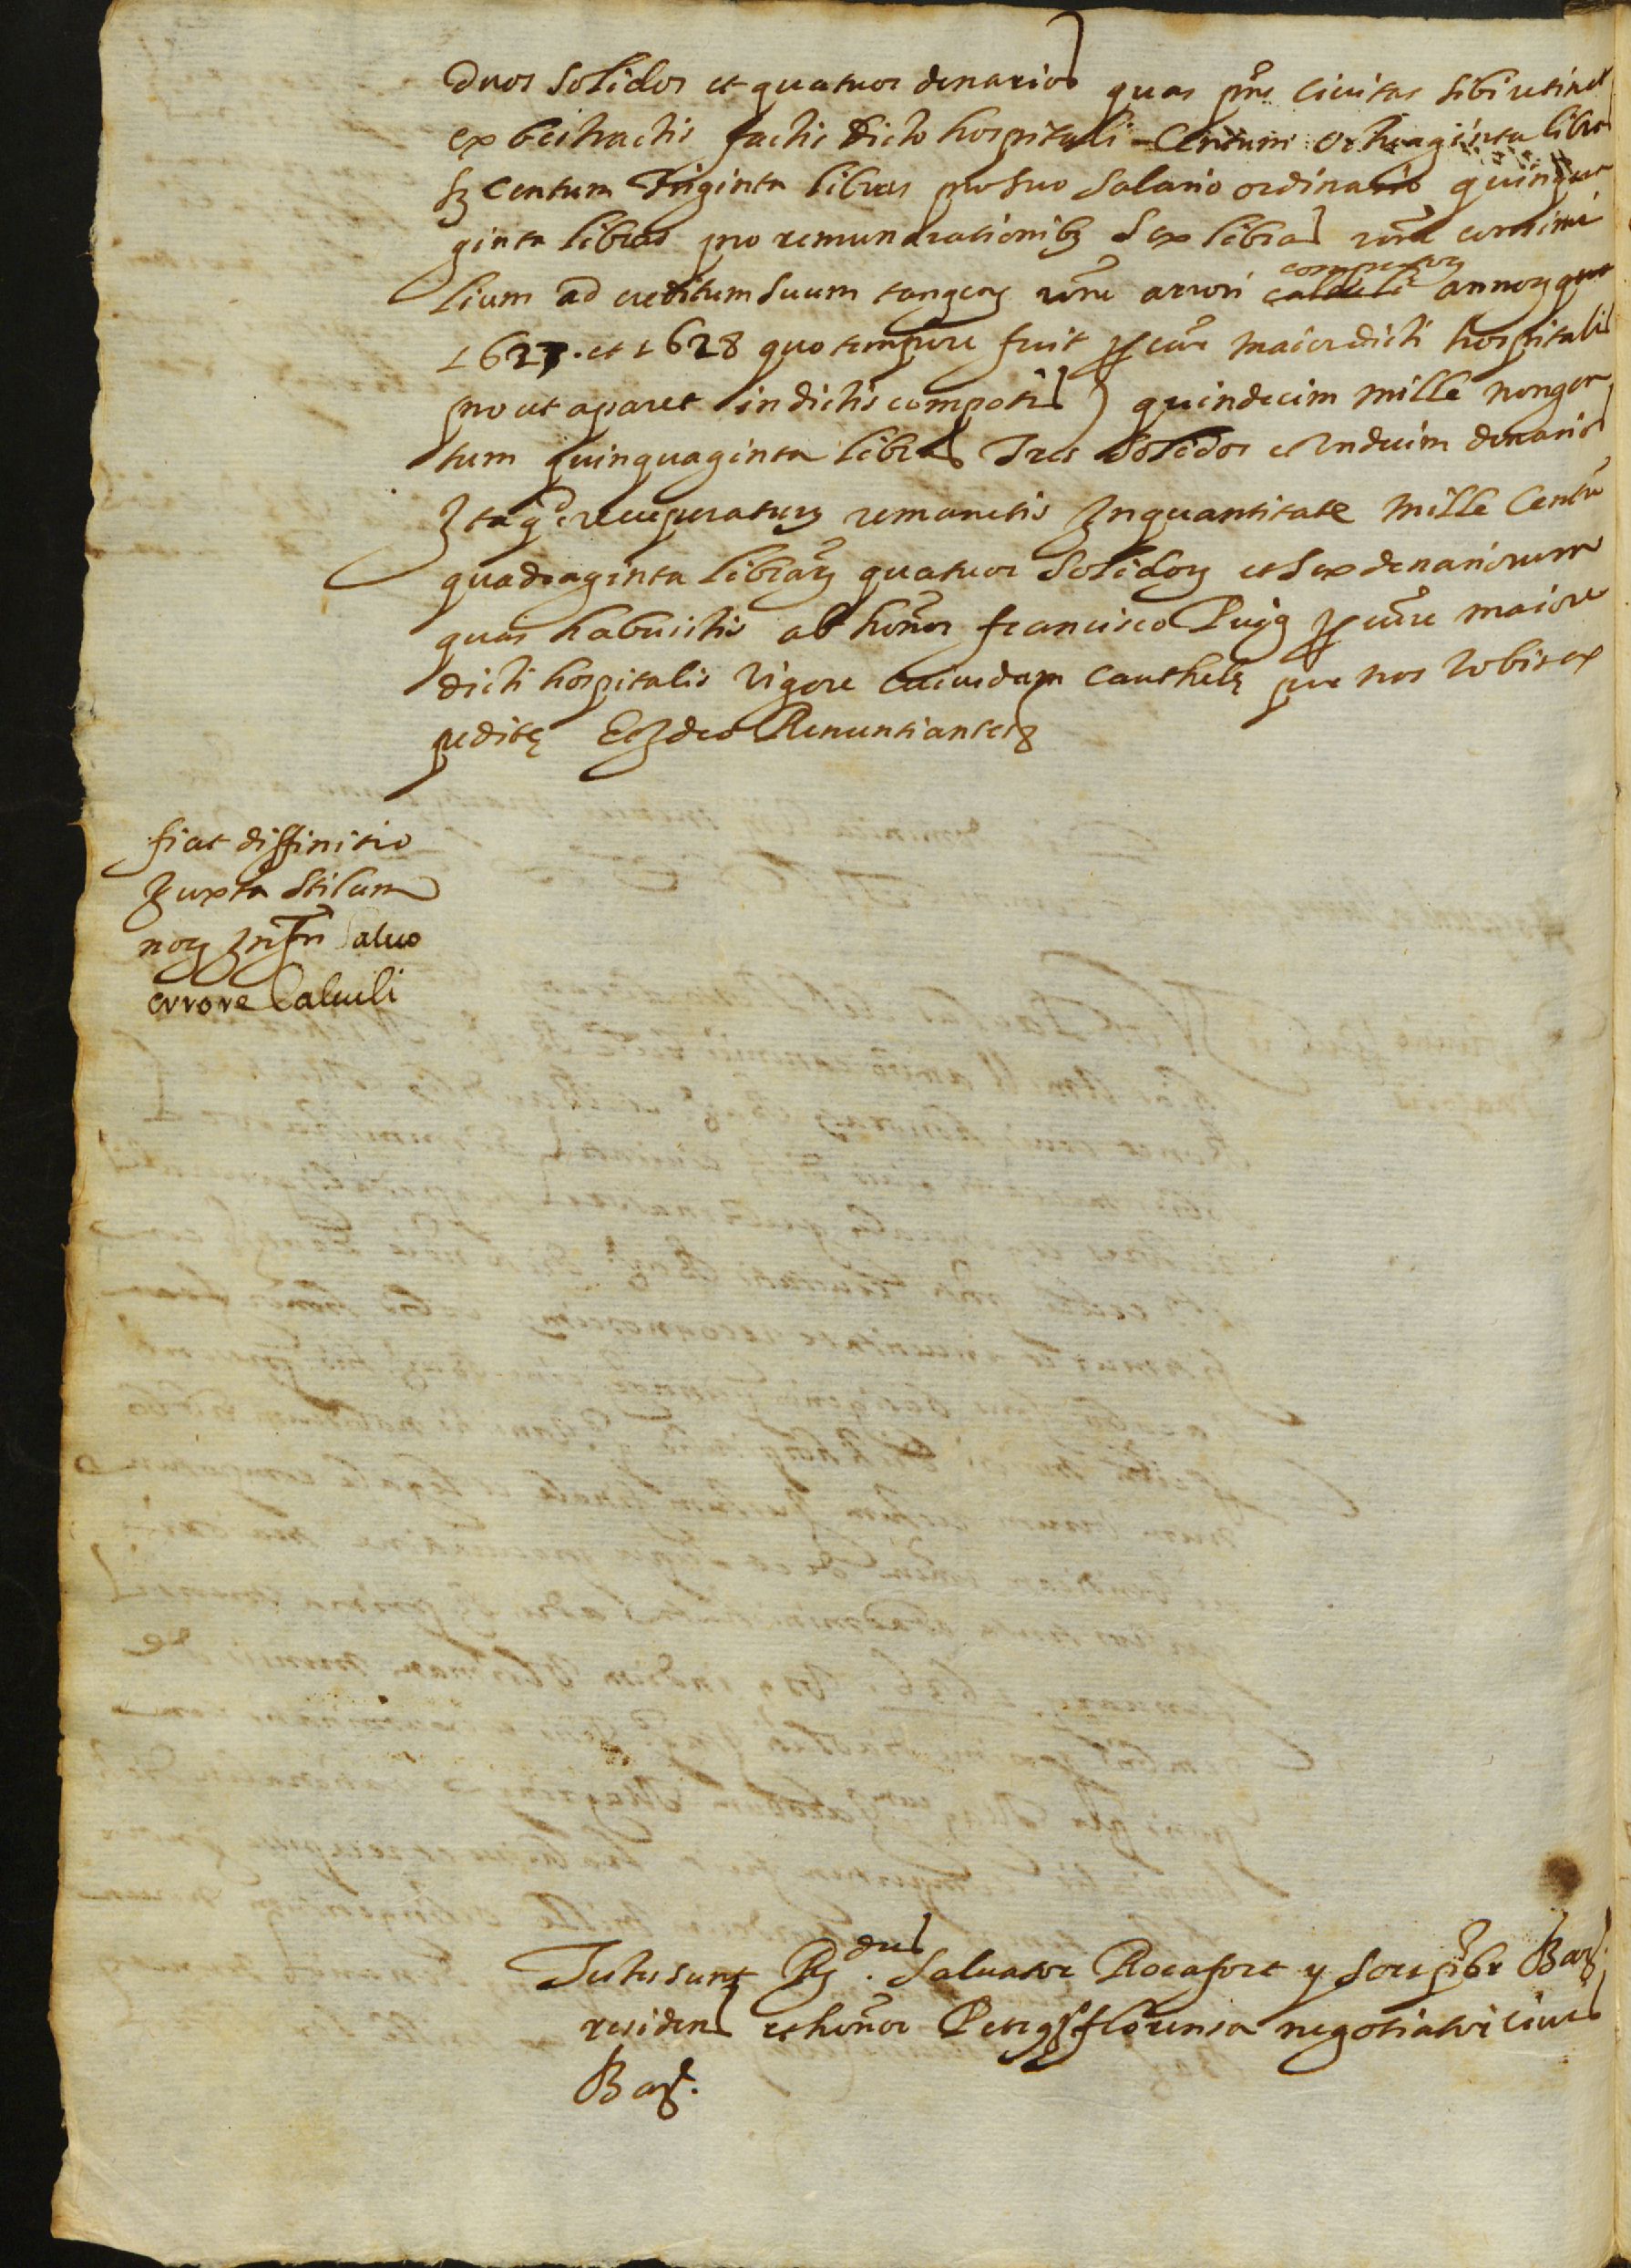 duos solidos et quatuor denarios quas pns civitas sibi retinet
ex bestractis factis dicto hospitali Centum octuaginta libras
sz centum Triginta libras pro suo salario ordinario quinqua
ginta libras pro remunerationibz sex libras rone
lium ad creditum suum tangenz rone arrori calculi compotorz annorz
1627. et 1628 quo tempore fuit maior dicti hospitalis
prout aparet in dictis compotis) quindecim mille nongen
tum quinquaginta libras Tres solidos et undecim denarios
Ita qd recuperaturz remanetis In quantitate mille Centu
quadraginta librarz quatuor solidorz et sex denariorum
quas habuistis ab honor francisco Puig maiore
dicti hospitalis vigore cuiusdam cauthele per nos vobis ex
pedite Et Ideo Renuntiantes
fiat diffinitio
Juxta stilum
norz Salvo
errore Calculi
Testes sunt Rz. dus Salvator Rocafort Bar
residens et honor Petrus florensa negotiator civis
Bar.